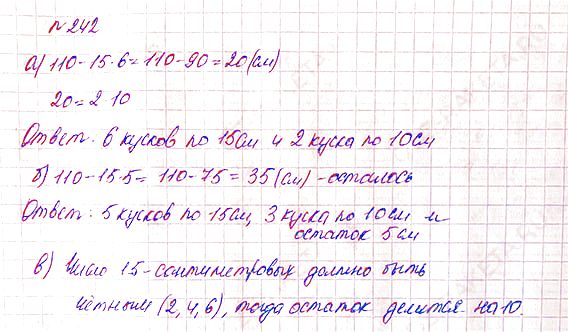 № 242
а) 110-15·6=110-90=20(см)
20=2·10
Ответ: 6 кусков по 15см и 2 куска по 10см
б) 110-15·5= 110-75=35(см)-осталось
Ответ: 5 кусков по 15см, 3 куска по 10см и
остаток 5см
в) Число 15-сантиметровых должно быть
чётным (2,4,6), тогда остаток делится на 10.